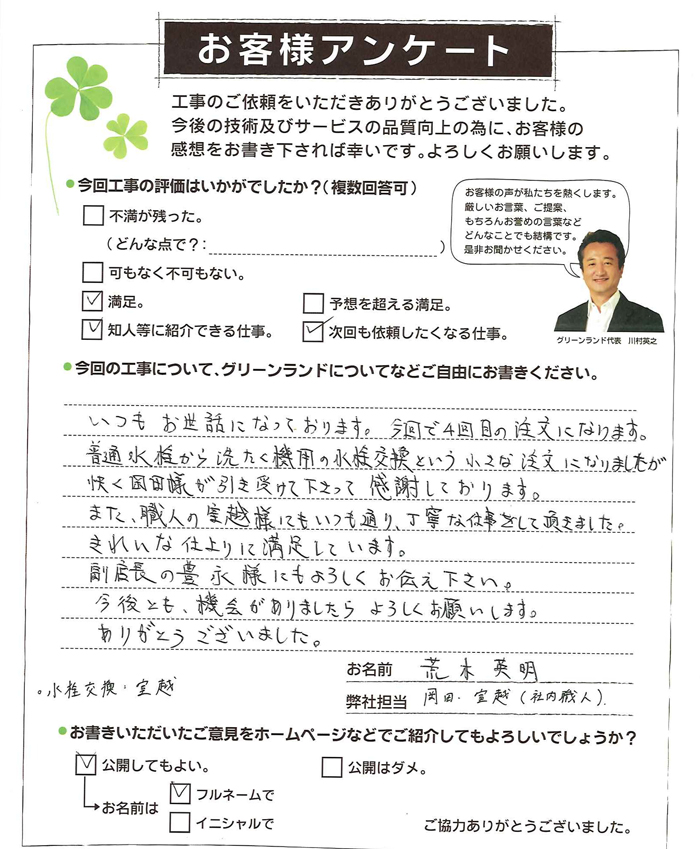 お客様アンケート
工事のご依頼をいただきありがとうございました。
今後の技術及びサービスの品質向上の為に、お客様の
感想をお書き下されば幸いです。よろしくお願いします。
●今回工事の評価はいかがでしたか？（複数回答可）
不満が残った。
（どんな点で？：　　　　　　）
可もなく不可もない。
満足。
予想を超える満足。
知人等に紹介できる仕事。
次回も依頼したくなる仕事。
お客様の声が私たちを熱くします。
厳しいお言葉、ご提案、
もちろんお誉めの言葉など
どんなことでも結構です。
是非お聞かせください。
グリーンランド代表　川村英之
●今回の工事について、グリーンランドについてなどご自由にお書きください。
いつも お世話になっております。今回で4回目の注文になります。
普通水栓から洗たく機用の水栓交換という小さな注文になりましたが
快く岡田様が引き受けて下さって 感謝しております。
また、職人の室越様にもいつも通り、丁寧な仕事をして頂きました。
きれいな仕上りに満足しています。
副店長の豊永様にもよろしくお伝え下さい。
今後とも、機会がありましたら よろしくお願いします。
ありがとうございました。
お名前　荒木英明
。水栓交換・室越
弊社担当　岡田・室越（社内職人）.
●お書きいただいたご意見をホームページなどでご紹介してもよろしいでしょうか？
公開してもよい。
公開はダメ。
お名前は
フルネームで
イニシャルで
ご協力ありがとうございました。